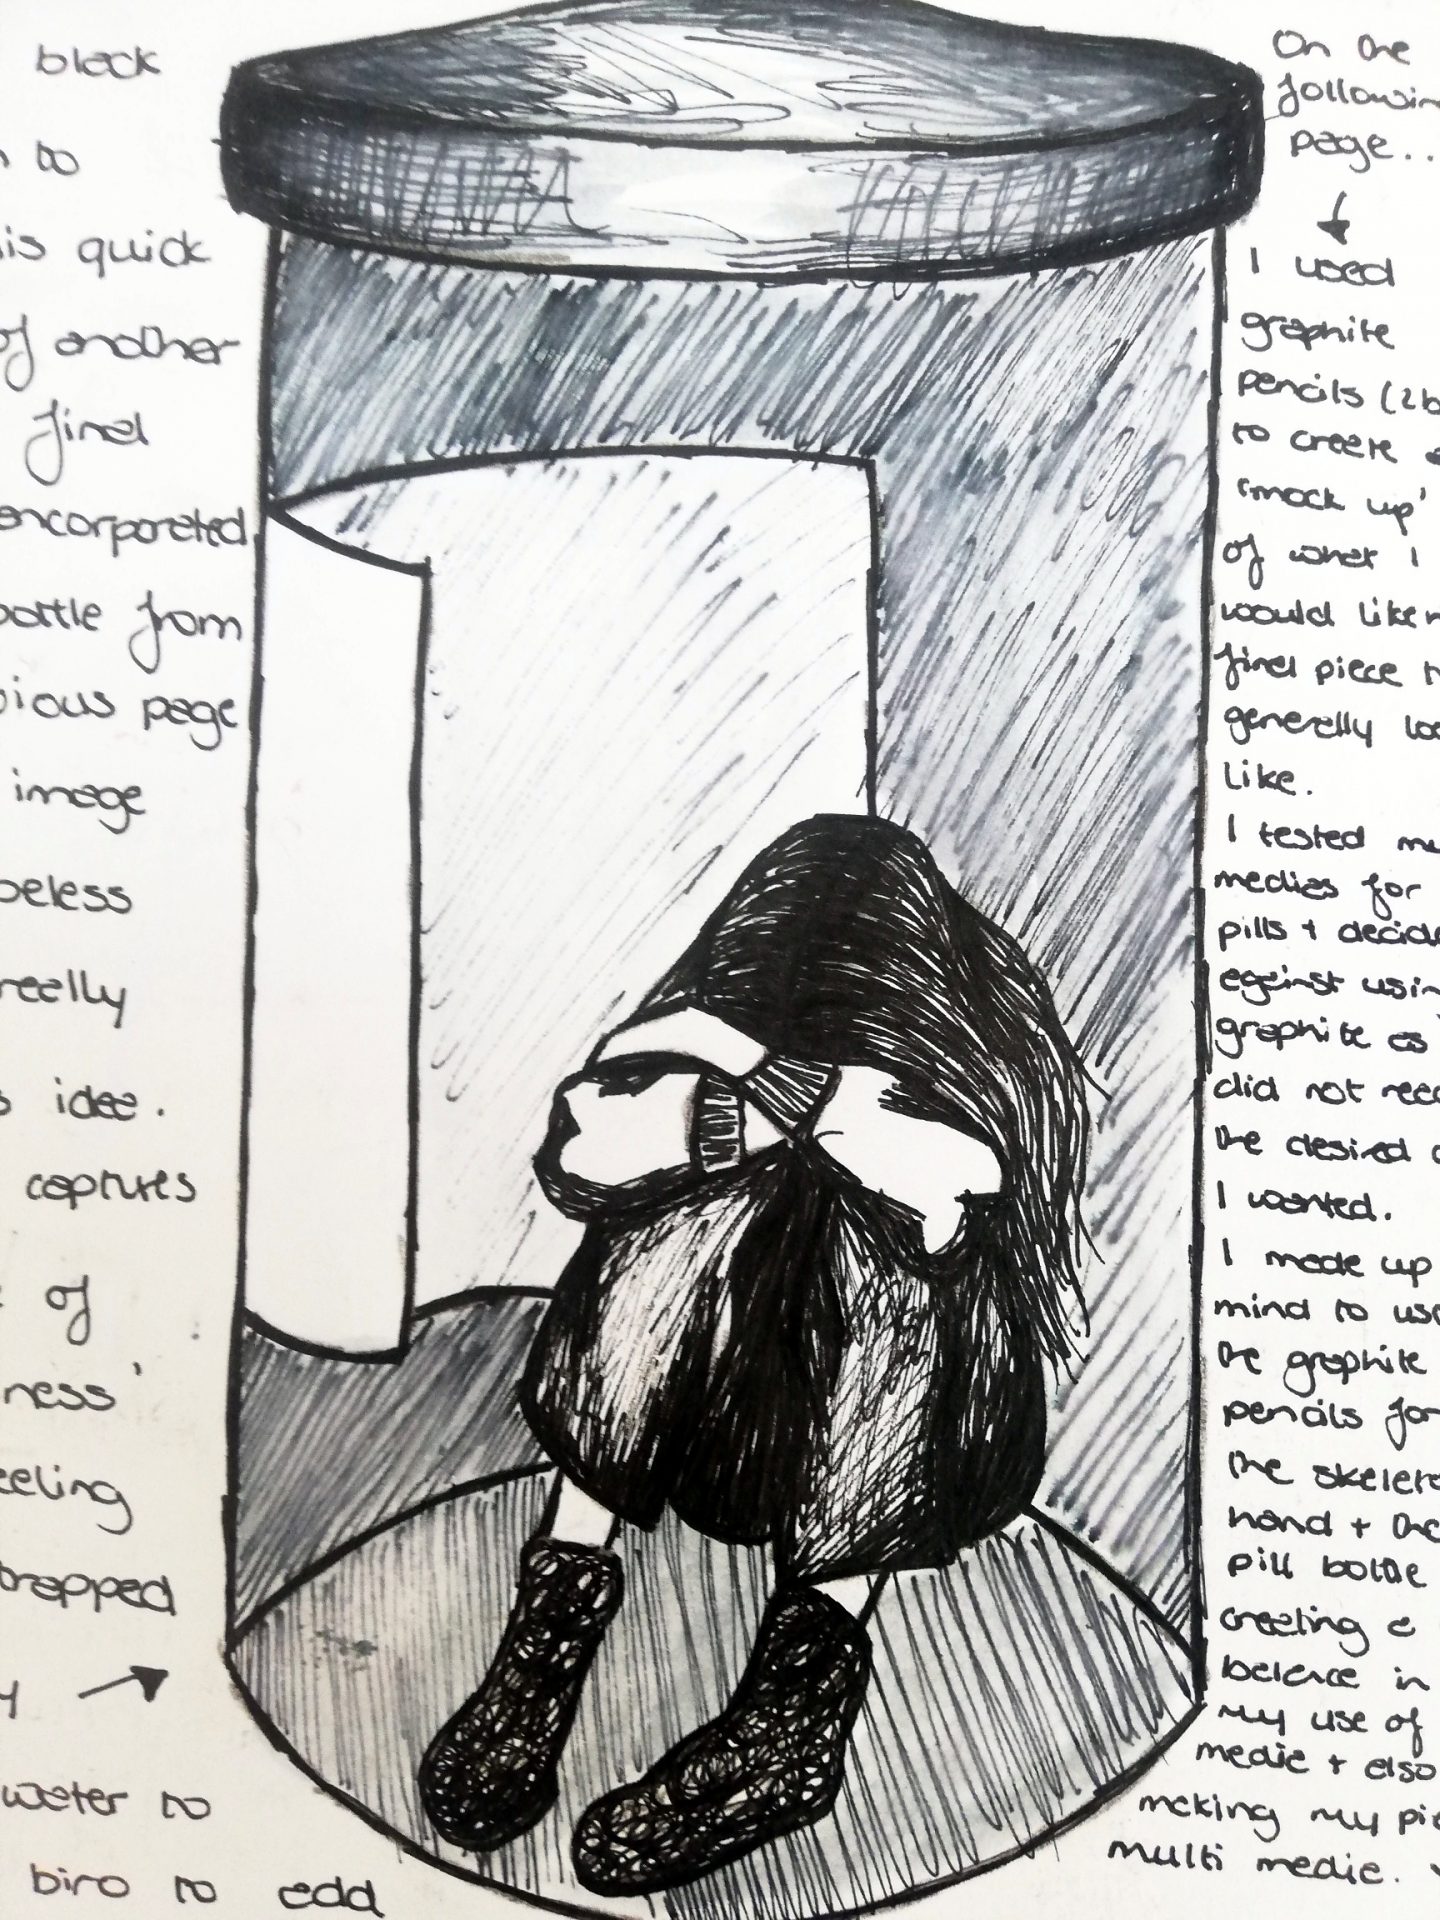 black
to
is quick
of another
final
encorporated
bottle from
page
image
really
idea.
captures
of
ness'
trapped
water to
biro to add
On the
following
page...
I used
graphite
pencils (2b
to create a
'mock up'
of what I
would like
final piece
generally
like.
I tested
medias for
pills + decide
against using
graphite as
did not
the desired
I wanted.
I made up
mind to use
the graphite
pencils for
the
hand + the
pill bottle
creating a
balance in
my use of
media + also
making my
multi media.